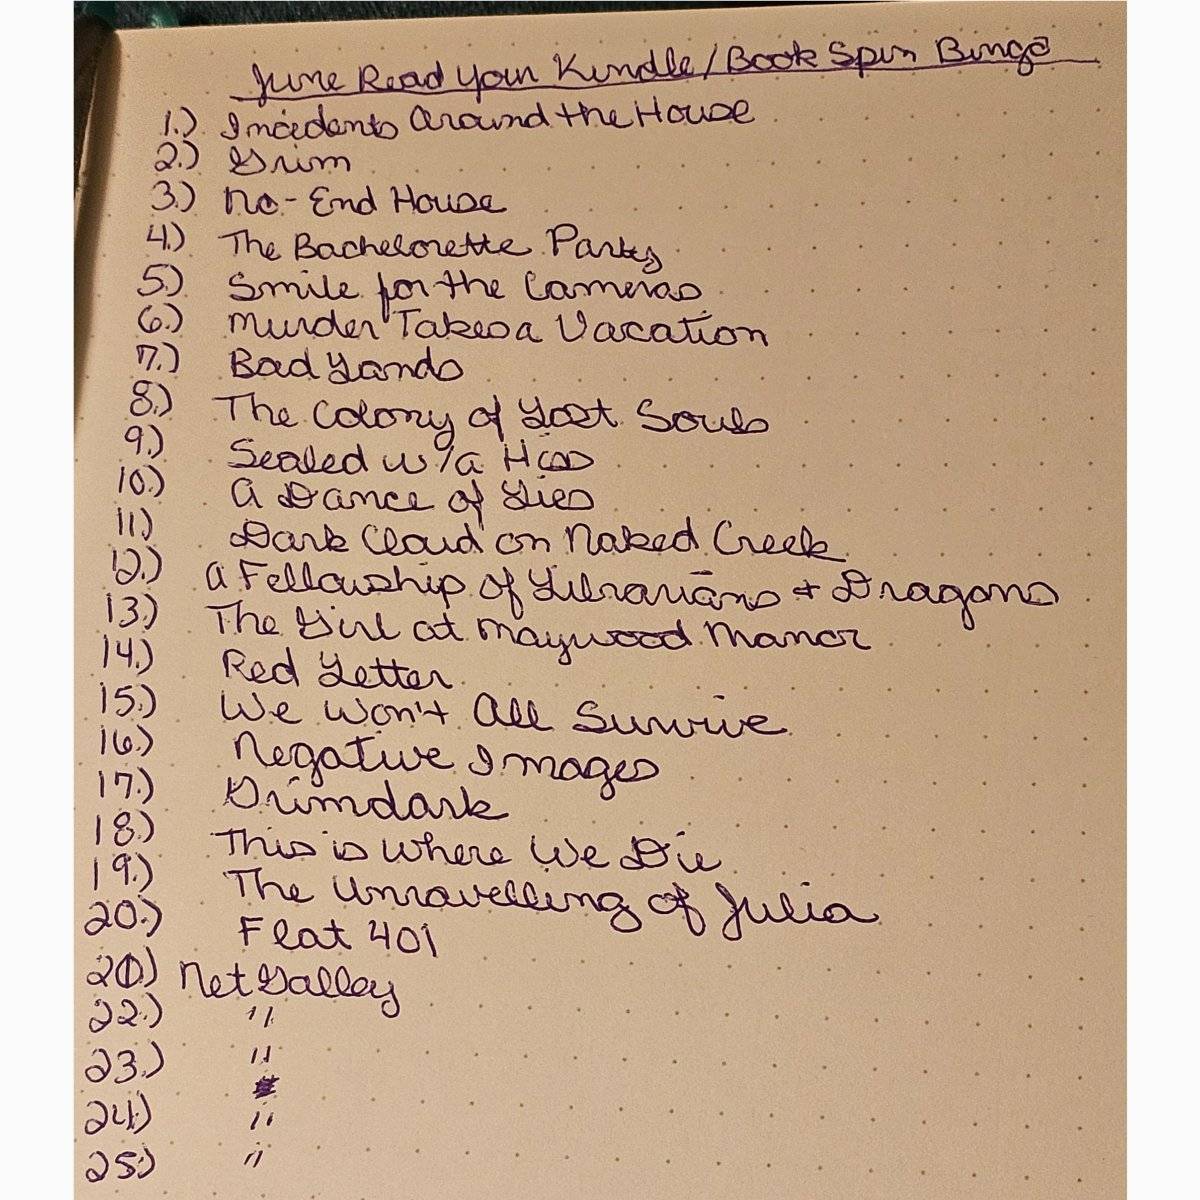 June Read Your Kindle/Book Spin Bingo
1.) Incidents Around the House
2.) Grim
3.) No-End House
4.) The Bachelorette Party
5.) Smile for the Cameras
6.) Murder Takes a Vacation
7.) Bad Lands
8.) The Colony of Lost Souls
9.) Sealed w/a Hiss
10.) A Dance of Lies
11.) Dark Cloud on Naked Creek
12.) A Fellowship of Librarians + Dragons
13.) The Girl at Maywood Manor
14.) Red Letter
15.) We Won't All Survive
16.) Negative Images
17.) Grimdark
18.) This is Where We Die
19.) The Unravelling of Julia
20.) Flat 401
21.) NetGalley
22.) "
23.) "
24.) "
25.) "